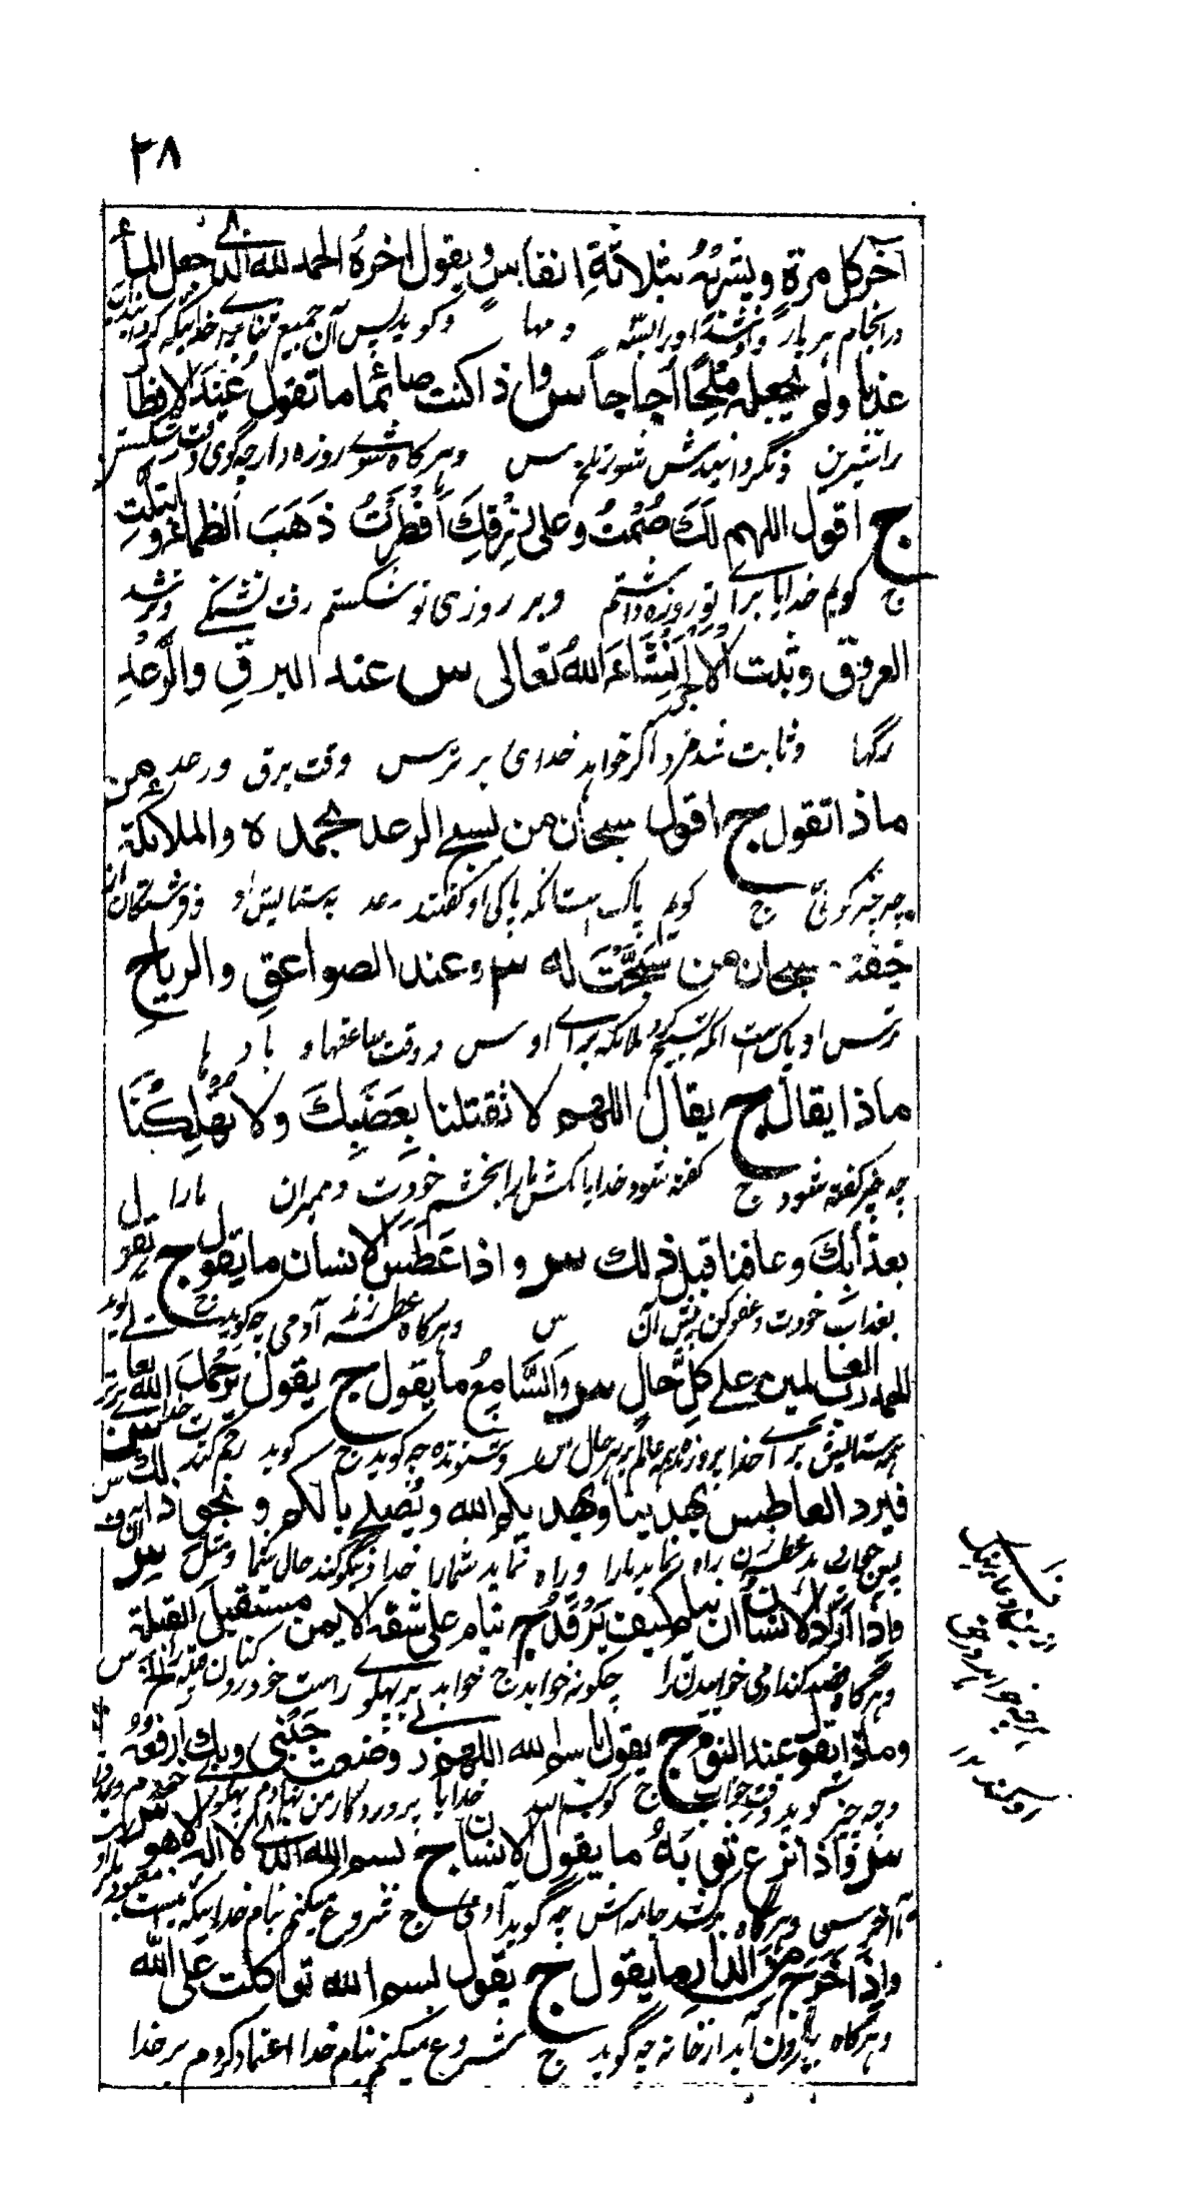 ٣٨
آخر كل مرة ويشربه بثلاثة انفاس ويقول اخره الحمد لله الذي جعل الماء
در انجام هر بار و او را البته و مها و گوید پس آن جمیع ثنا مر خدا یکه گردانید
عذبا ولم يجعله ملحا أجاجا س واذا كنت صائما ما تقول عند الافطار
را شیرین و نگردانیدش شور تلخ س وهرگاه شوے روزه دار چه گوی وقت شکستن
ج اقول اللهم لك صمت وعلى رزقك أفطرت ذهب الظماء وابتلت
ج گویم خدایا براے تو روزه داشتم و بر روزی تو شکستم رفت تشنگے و تر شد
العروق وثبت الاجر إنشاء الله تعالى س عند البرق والرعد
رگها و ثابت شد مزد اگر خواهد خدای برتر س وقت برق و رعد
ماذا تقول ج اقول سبحان من يسبح الرعد بحمده والملائكة من
چه چیز گوئی ج گویم پاک ست آنکه پاکی او گفتند رعد به ستایش او و فرشتگان از
خيفته سبحان من سبحت له س وعند الصواعق والرياح
ترس او پاک ست آنکه تسبیح کرد ملائکه براے او س در وقت صاعقها و باد ها
ماذا يقال ج يقال اللهم لا تقتلنا بغضبك ولا تهلكنا
چه چیز گفته شود ج گفته شود خدایا مکش مارا بخشم خودت و ممیران مارا
بعذابك وعافنا قبل ذلك س واذا عطس الانسان ما يقول ج يقول
بعذاب خودت و عفو کن پیش آن س وهرگاه عطسه زند آدمی چه گوید ج گوید
الحمد لله رب العالمين على كل حال س والسامع ما يقول ج يقول يرحمك الله تعالى
همه ستایش براے خدا عالم بر هر حال س و شنونده چه گوید ج گوید رحم کند
فيرد العاطس يهدينا ويهديكم الله ويصلح بالكم ونحو ذلك س
پس جواب دهد عطسه زن راه نماید مارا و راه نماید شمارا خدا و نیکو کند حال شما و مثل آن
واذا أراد الانسان ان ينام كيف يرقد ج ينام على شقه الايمن مستقبل القبلة
وهرگاه قصد کند آدمی خوابیدن را چگونه خوابد ج خوابد بر پهلوے راست خود
وماذا يقول عند النوم ج يقول باسم الله اللهم رب وضعت جنبي وبك أرفعه
و چه چیز گوید وقت خواب ج گوید خدایا پروردگار من نهادم پهلو
س واذا نزع ثوبه ما يقول الانسان ج بسم الله الذي لا اله الا هو
س وهرگاه برکشد جامه اش چه گوید آدمی ج شروع میکنم بنام خدا یکه نیست معبود
واذا خرج من الدار ما يقول ج يقول بسم الله توكلت على الله
وهرگاه بیرون آید از خانه چه گوید ج شروع میکنم بنام خدا اعتماد کردم بر خدا